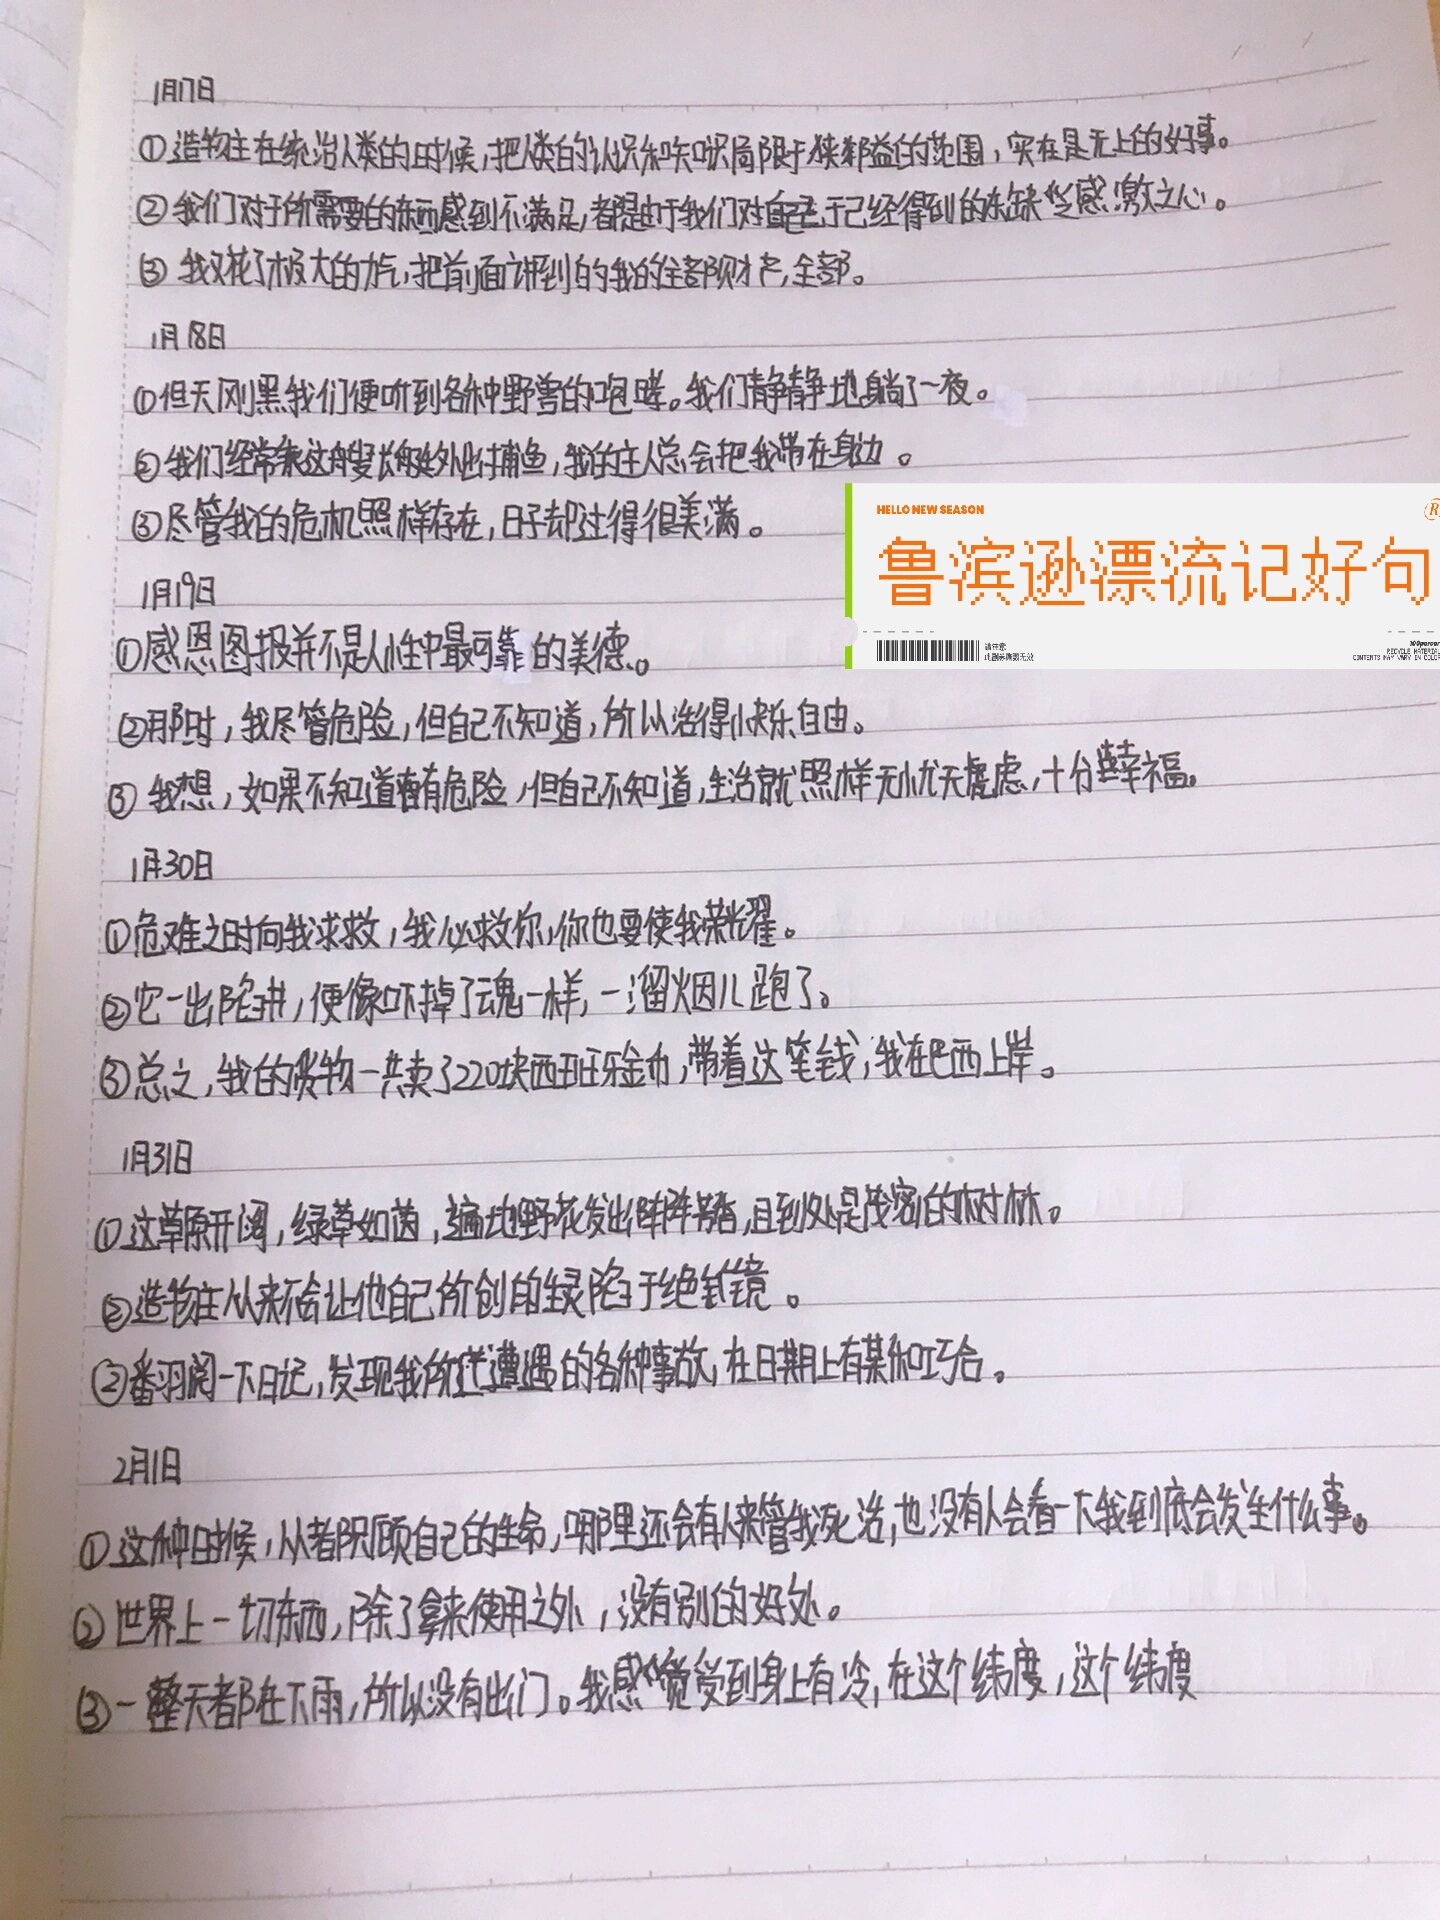 1月17日
①造物主在统治人类的时候，把人类的认识和知识局限于狭隘的范围，实在是无上的好事。
②我们对于所需要的东西感到不满足，都是由于我们对自己于已经得到的东缺乏感激之心。
③我又花了极大的力气，把前面讲到的我的全部财产，全部。
1月18日
①但天刚黑我们便听到各种野兽的咆哮。我们静静地躺了一夜。
②我们经常乘这艘长艇外出捕鱼，我的主人总会把我带在身边。
③尽管我的危机照样存在，日子却过得很美满。
HELLO NEW SEASON
鲁滨逊漂流记好句
请注意
此副券撕毁无效
100percent
RECYCLE MATERIAL
CONTENTS MAY VARY IN COLOR
1月19日
①感恩图报并不是人性中最可靠的美德。
②那时，我尽管危险，但自己不知道，所以活得快乐自由。
③我想，如果不知道有危险，但自己不知道，生活就照样无忧无虑，十分幸福。
1月30日
①危难之时向我求救，我必救你，你也要使我荣耀。
②它一出陷井，便像吓掉了魂一样，一溜烟儿跑了。
③总之，我的货物一共卖了220块西班牙金币，带着这笔钱，我在巴西上岸。
1月31日
①这草原开阔，绿草如茵，遍地野花发出阵阵芳香，且到处是茂密的树林。
②造物主从来不会让他自己所创的生灵陷于绝镜。
②翻阅一下日记，发现我所遭遇的各种事故，在日期上有某和巧合。
2月1日
①这种时候，人都只顾自己的生命，哪里还会有人来管我死活，也没有人会看一下我到底会发生什么事。
②世界上一切东西，除了拿来使用之外，没有别的好处。
③一整天都在下雨，所以没有出门。我感觉受到身上有冷，在这个纬度，这个纬度